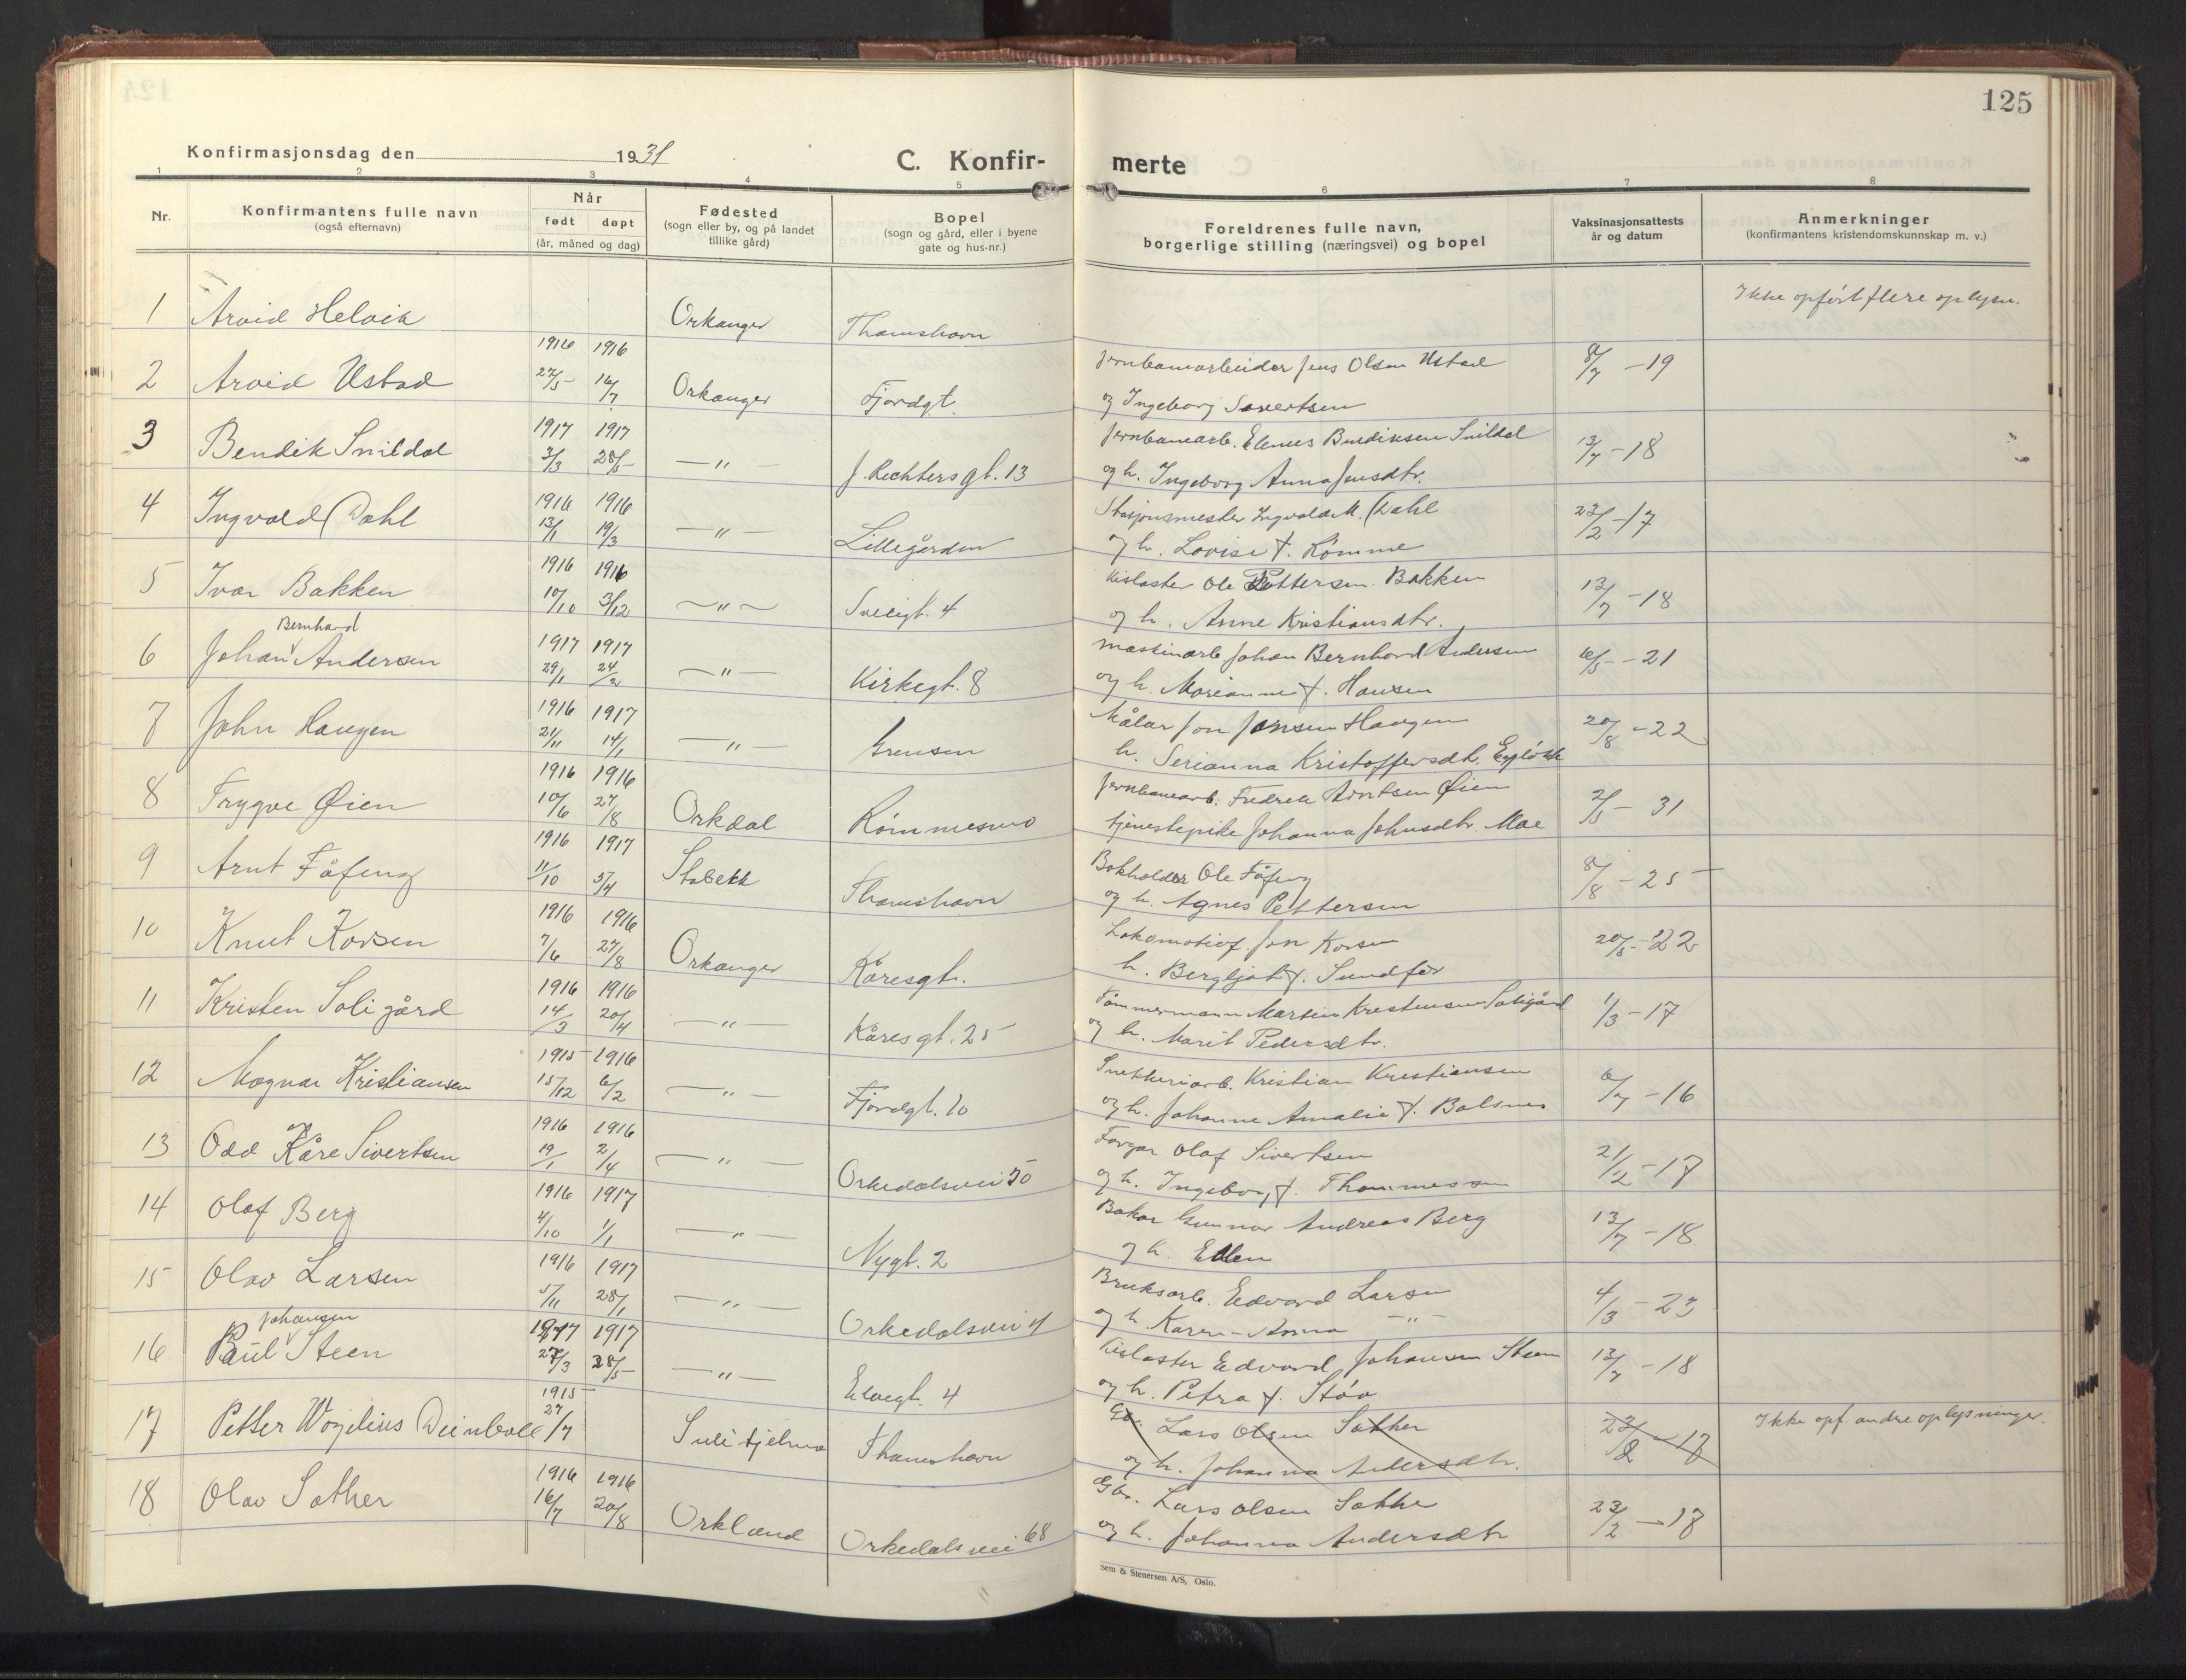 125
Konfirmasjonsdag den 1931 C. Konfir- merte
1 2 3 4 5 6 7 8
Nr. Konfirmantens fulle navn (også efternavn) Når født døpt (år, måned og dag) Fødested (sogn eller by, og på landet tillike gård) Bopel (sogn og gård, eller i byene gate og hus-nr.) Foreldrenes fulle navn, borgerlige stilling (næringsvei) og bopel Vaksinasjonsattests år og datum Anmerkninger (konfirmantens kristendomskunnskap m. v.)
1 Arvid Helvik Orkanger Thamshavn Ikke opført flere oplysn.
1916 1916 Jernbanearbeider Jens Olsen Ustad 8/7 -19
2 Arvid Ustad 27/5 16/7 Orkanger Fjordgt. og Ingeborg Sivertsen
1917 1917 Jernbanearb. Elenus Bendiksen Snildal 13/7 -18
3 Bendik Snildal 3/3 28/5 —"— J. Rechters gt. 13 og h. Ingeborg Anna Jensdtr.
1916 1916 Stasjonsmester Ingvald M. Dahl 23/2 -17
4 Ingvald Dahl 13/1 19/3 —"— Lillegården og h. Lovise f. Rømme
1916 1916 Kislaster Ole Pettersen Bakken 13/7 -18
5 Ivar Bakken 10/10 3/12 —"— Sveigt. 4 og h. Anne Kristiansdtr.
Bernhard 1917 1917 maskinarb Johan Bernhard Andersen 6/5 -21
6 Johan Andersen 29/1 24/2 —"— Kirkegt. 8 og h. Marianne f. Hansen
1916 1917 Målar Jon Jonsen Haugen 20/8 -22
7 John Haugen 21/11 14/1 —"— Grensen h. Serianna Kristoffersdtr.
1916 1916 Jernbanearb. Fredrik Arntsen Øien 2/5 - 31
8 Trygve Øien 10/6 27/8 Orkdal Rømmesmo tjenestepike Johanna Johnsdtr. Moe
1916 1917 Bokholder Ole Fåfeng 8/8 - 25
9 Arnt Fåfeng 11/10 5/4 Stabekk Thamshavn og h. Agnes Pettersen
1916 1916 Lokomotivf. Jon Korsen 20/5 -22
10 Knut Korsen 7/6 27/8 Orkanger Kåresgt. h. Bergljot f. Sundfør
1916 1916 Tømmermann Martin Kristensen Soligård 1/3 -17
11 Kristen Soligård 14/3 20/4 —"— Kåresgt. 25 og h. Marit Pedersdtr.
1915 1916 Snekkeriarb. Kristian Kristiansen 6/7 -16
12 Magnar Kristiansen 15/12 6/2 —"— Fjordgt. 10 og h. Johanne Amalie f. Balsnes
1916 1916 Farger Olaf Sivertsen 21/2 -17
13 Odd Kåre Sivertsen 19/1 2/4 —"— Orkedalsvei 50 og h. Ingeborg f. Thommessen
1916 1917 Baker Gunnar Andreas Berg 13/7 -18
14 Olaf Berg 4/10 1/1 —"— Nygt. 2 og h. Ellen
1916 1917 Bruksarb. Edvard Larsen 4/3 - 23
15 Olav Larsen 5/11 28/1 —"— Orkedalsvei 4 og h. Karen-Anna —"—
Johansen 1917 1917 Kislaster Edvard Johansen Steen 13/7 - 18
16 Paul Steen 27/3 28/5 —"— Elvegt. 4 og h. Petra f. Støa
1915 Gbr. Lars Olsen Sæther 23/2 -17 Ikke opf. andre oplysninger.
17 Petter Wogelius Deinboll 27/7 Sulitjelma Thamshavn og h. Johanna Andersdtr.
1916 1916 Gbr. Lars Olsen Sæther 23/2 -17
18 Olav Sæther 16/7 20/8 Orkland Orkedalsvei 68 og h. Johanna Andersdtr
Sem & Stenersen A/S, Oslo.